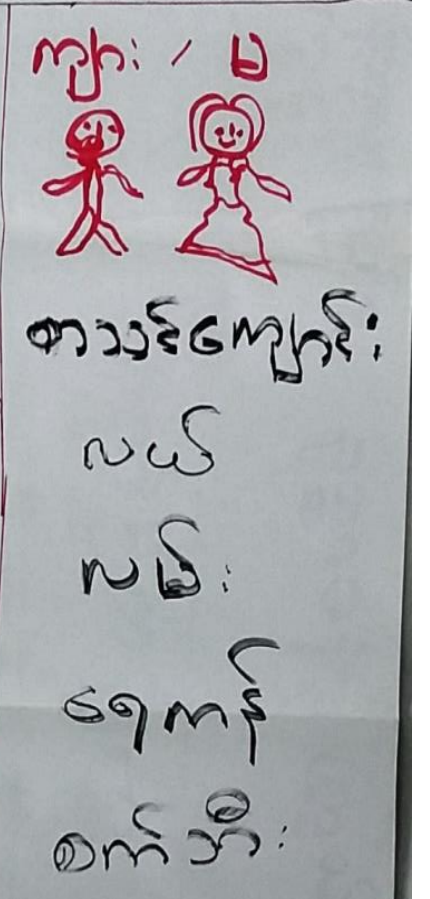 ကျား / မ
စာသင်ကျောင်း
လယ်
လမ်း
ရေကန်
စက်ဘီး